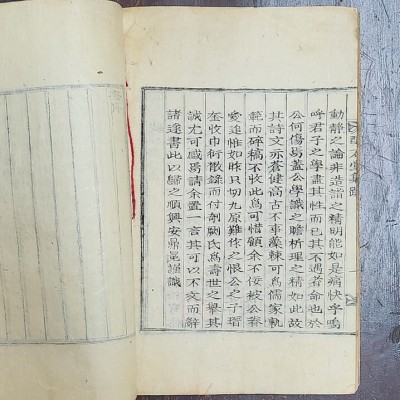 動靜之論非造詣之精明能如是痛快乎嗚
呼君子之學盡其性而已其不遇者命也於
公何傷焉盖公學識之贍析理之精如此故
其詩文亦蒼健高古不事藻 可爲儒家軌
範而碎稿不收可惜顧余不佞被公眷
愛 惟如昨只切九原難作之恨公之子瑨
奎收巾衍散錄而付剞劂氏爲壽世之擧其
誠尤可感焉請余置一言其可以不文而辭
諸遂書此以歸之順興安鼎 謹識